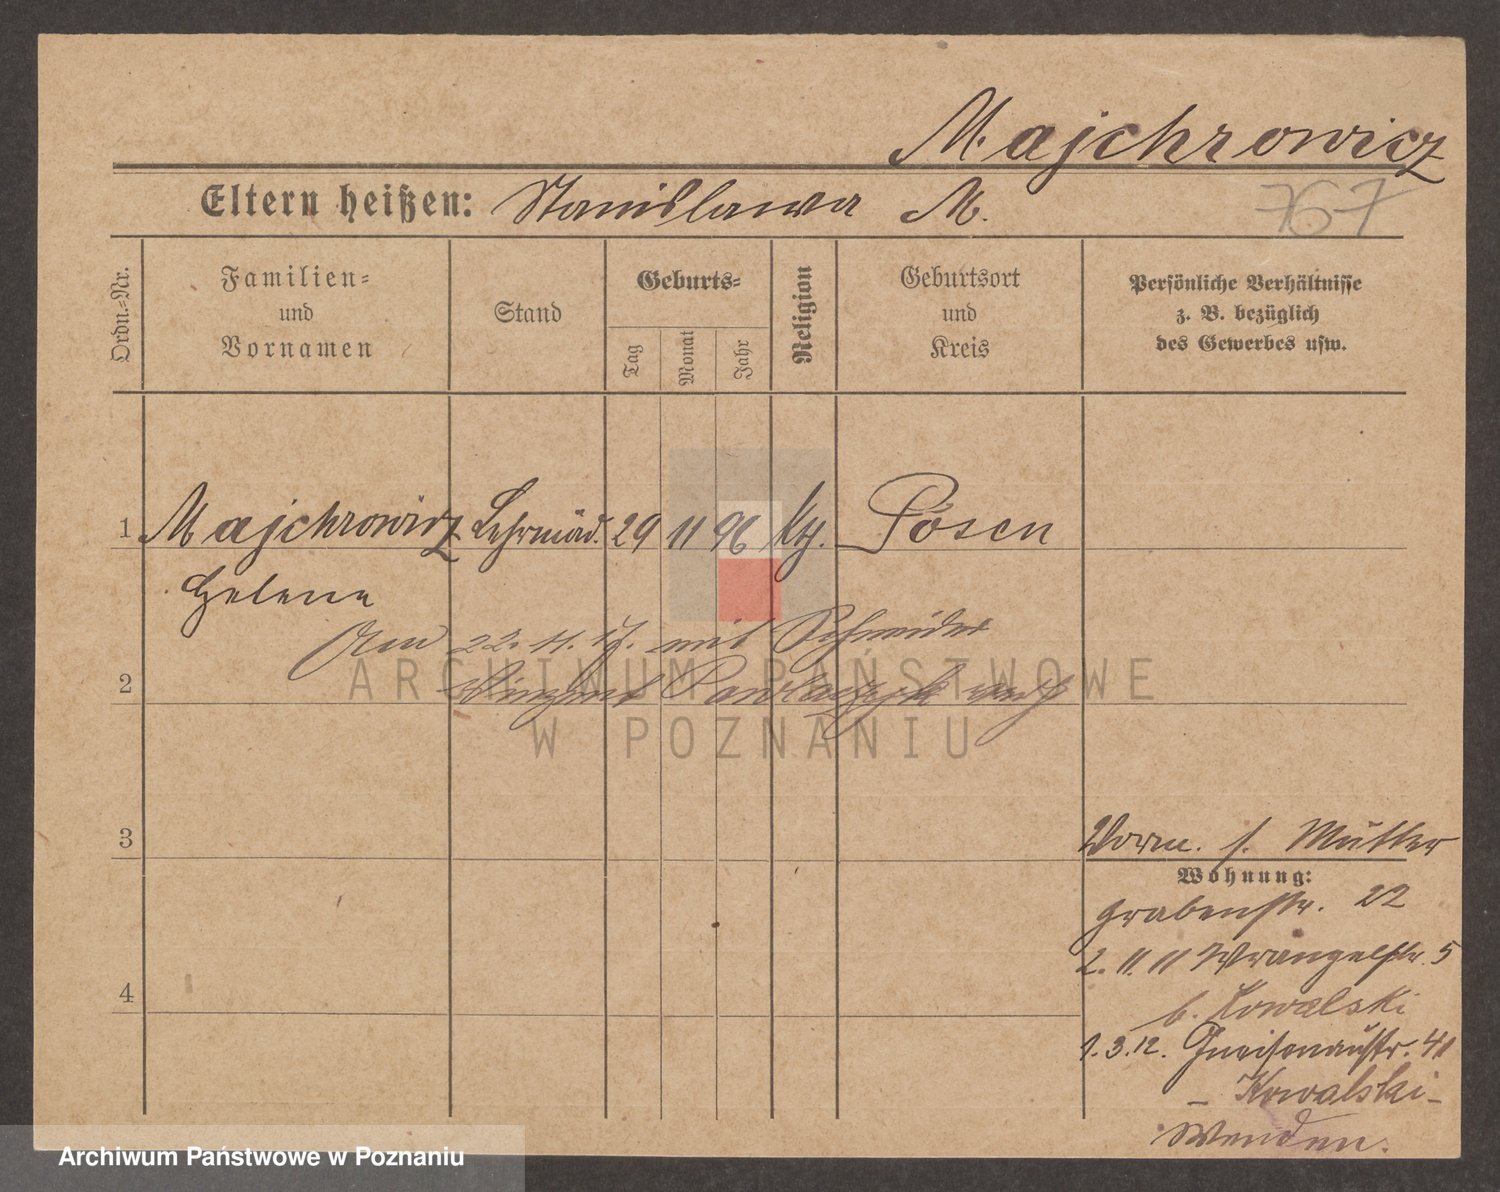 Majchrowicz
Eltern heißen: Stanislawa M.
767
Ordn.-Nr.
Familien-
und
Vornamen
Stand
Geburts-
Tag
Monat
Jahr
Religion
Geburtsort
und
Kreis
Persönliche Verhältnisse
z. B. bezüglich
des Gewerbes usw.
1 Majchrowicz Lehrmäd. 29 11 96 kth. Posen
Helene
Am 22. 11. 17. mit Schneider
2 Vinzent Pawlaczyk verh
ARCHIWUM PAŃSTWOWE
W POZNANIU
3
Vorm. s. Mutter
Wohnung:
Grabenstr. 22
2. 11. 11 Wrangelstr. 5
b. Kowalski
4
1. 3. 12. Gneisenaustr. 41
- Kowalski -
Wenden.
Archiwum Państwowe w Poznaniu